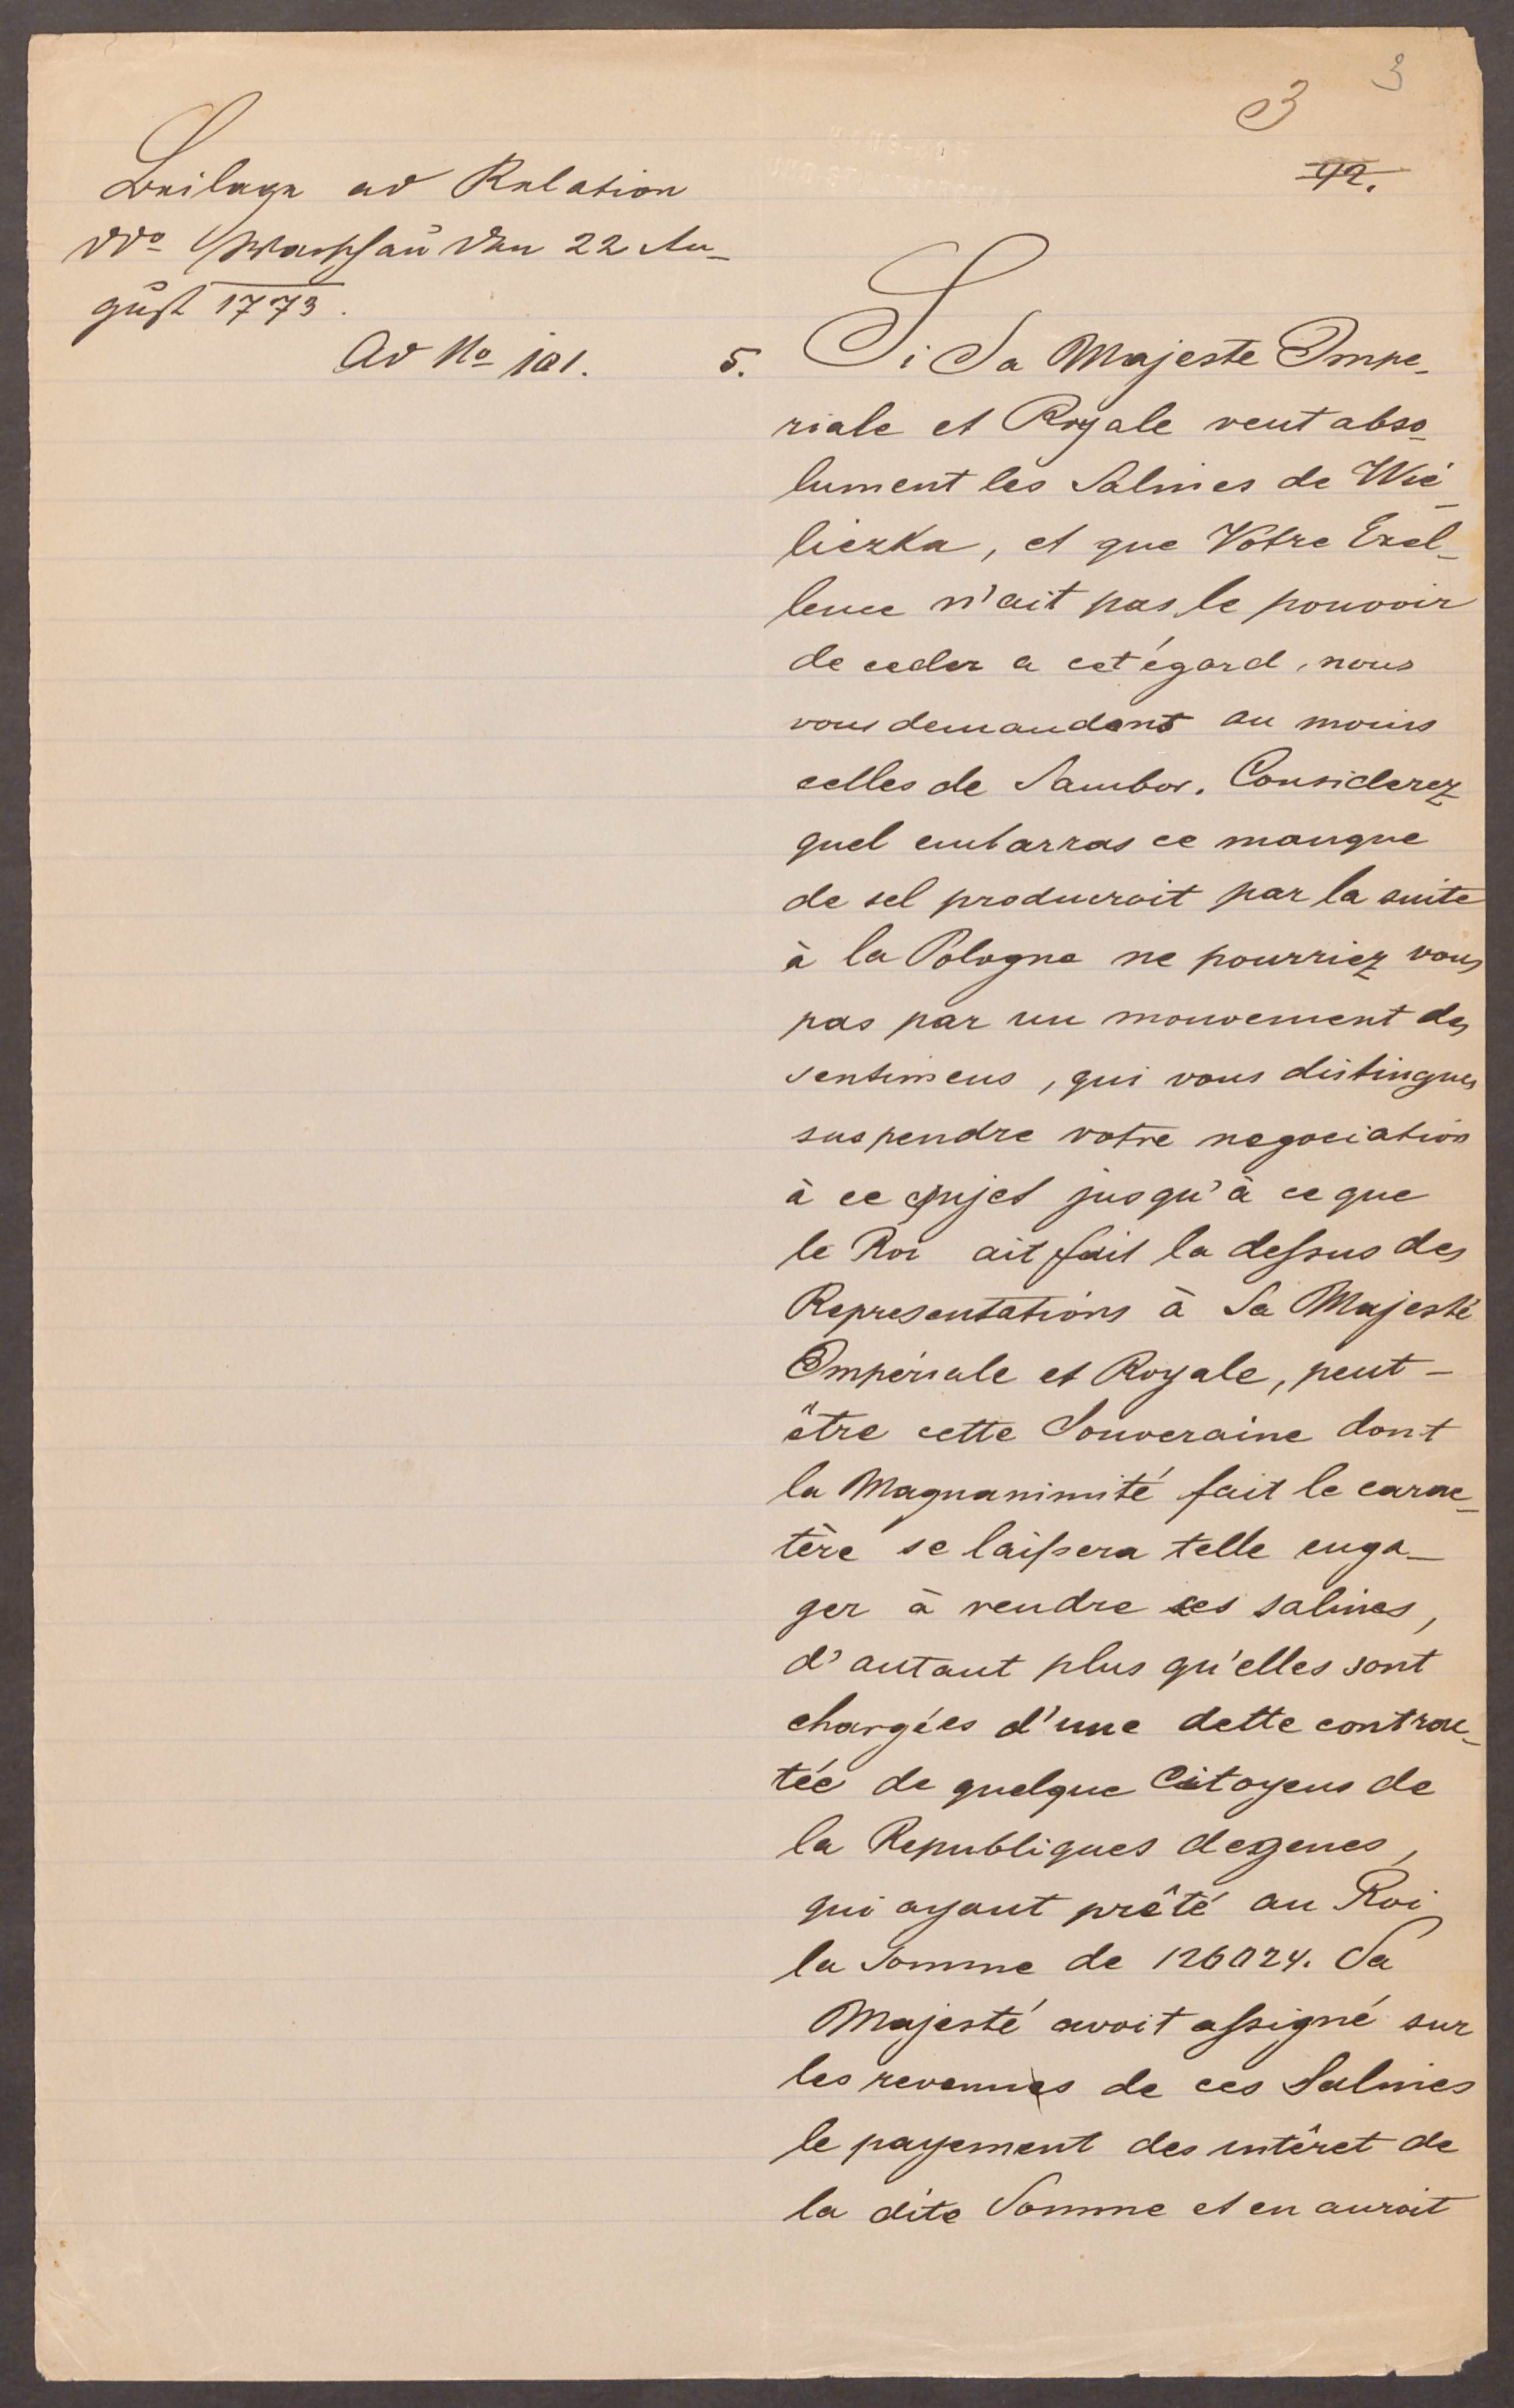 3
3
92.
Beilage ad Relation
ddo Warschau den 22 Au-
gust 1773.
Ad No 101.
5. Si Sa Majeste Impe-
riale et Royale veut abso-
lument les Salines de Wie-
liczka, et que Votre Exel-
lence n'ait pas le pouvoir
de ceder a cet égard, nous
vous demandons au moins
celles de Sambor. Considerez
quel embarras ce manque
de sel produiroit par la suite
à la Pologne ne pourriez vous
pas par un mouvement des
sentimens, qui vous distingues
suspendre votre negociation
à ce sujet jusqu'à ce que
le Roi ait fait la dessus des
Representations à Sa Majesté
Impériale et Royale, peut-
être cette Souveraine dont
la Magnanimité fait le carac-
tère se laissera telle enga-
ger à rendre ces salines,
d'autant plus qu'elles sont
chargées d'une dette contrac-
tée de quelque Citoyens de
la Republiques degenes,
qui ayant prêté au Roi
la Somme de Sa
Majesté avoit assigné sur
les revenues de ces Salines
le payement des intêret de
la dite Somme et en auroit